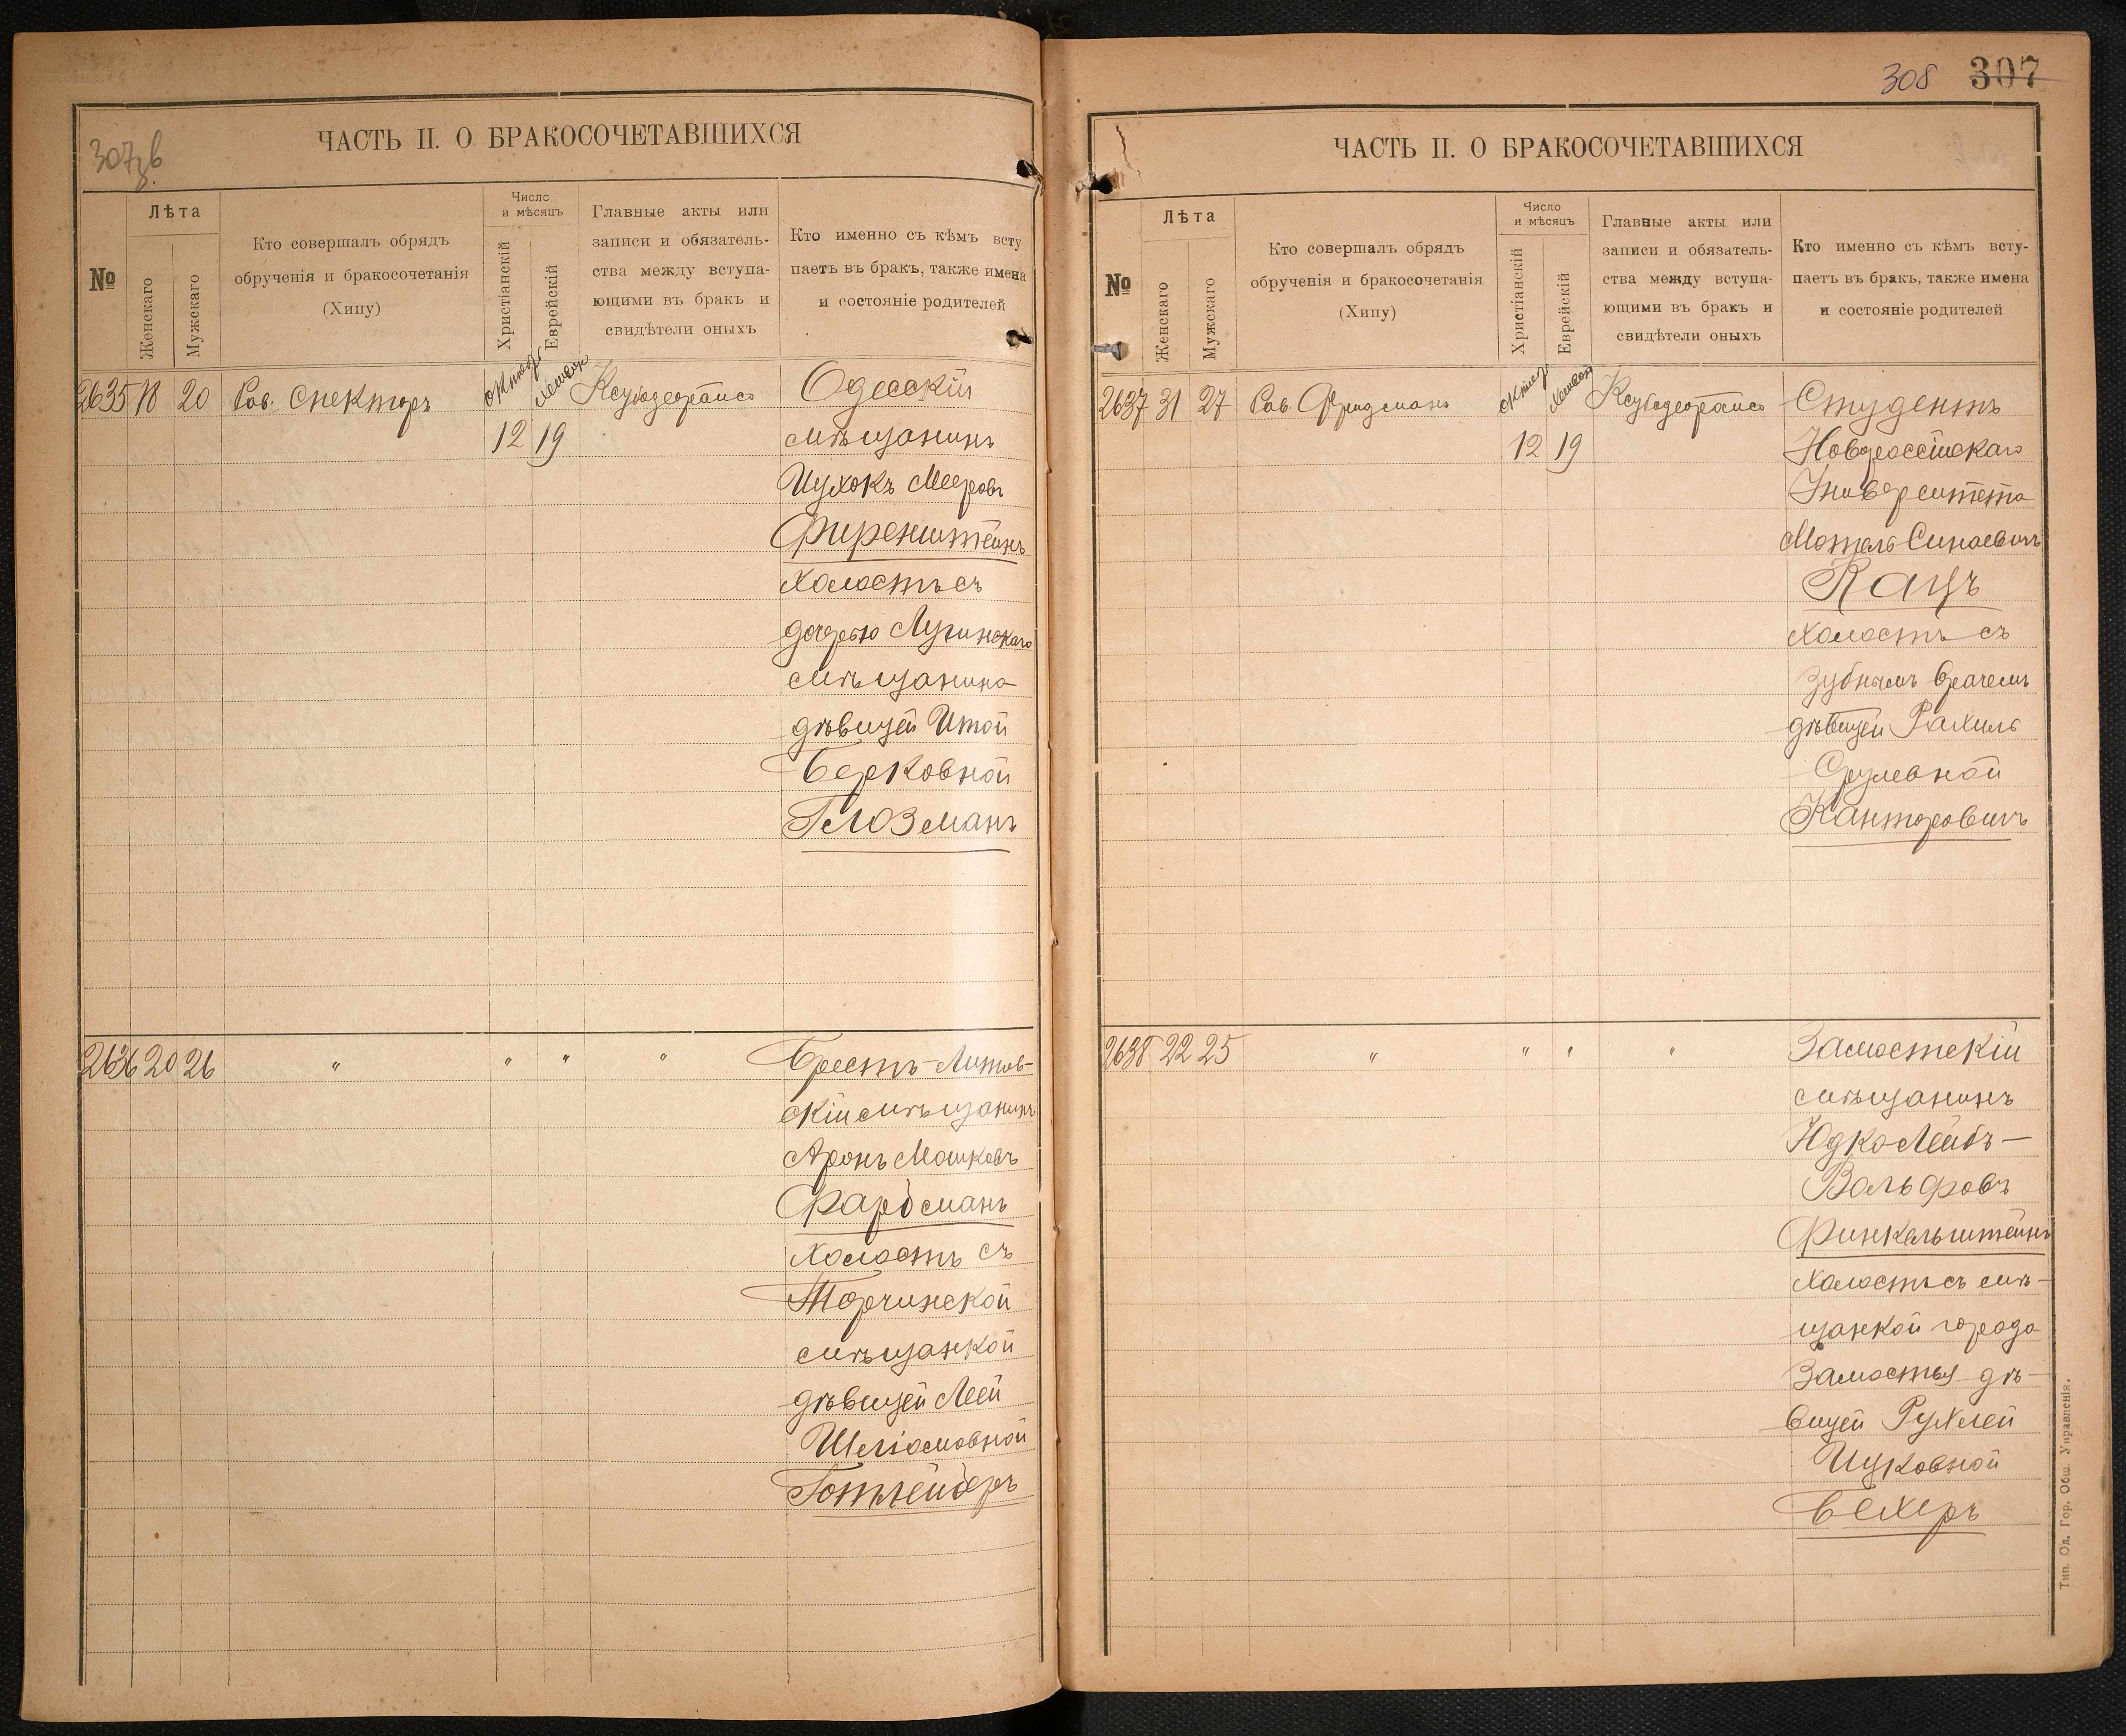 307 зв.
ЧАСТЬ II. О БРАКОСОЧЕТАВШИХСЯ
№
Лѣта
Женскаго
Мужскаго
Кто совершалъ обрядъ
обрученія и бракосочетанія
(Хипу)
Число
и мѣсяцъ
Христіанскій
Еврейскій
Главные акты или
записи и обязатель-
ства между вступа-
ющими въ бракъ и
свидѣтели оныхъ
Кто именно съ кѣмъ всту
паетъ въ бракъ, также имена
и состояніе родителей
2635 18 20 Рав. Спекторъ
12 19
Одесскій
мѣщанинъ
Ицхокъ Мееровъ
Фиренштейнъ
холостъ съ
дочерью Лугинскаго
мѣщанина
дѣвицей Итой
Берковной
Глозманъ
2636 20 26 " " " " Брестъ-Литов-
скій мѣщанинъ
Аронъ Мошковъ
Фарбманъ
холостъ съ
Торчинской
мѣщанкой
дѣвицей Леей
Шліомовной
Готлейберъ
308 307
ЧАСТЬ II. О БРАКОСОЧЕТАВШИХСЯ
№
Лѣта
Женскаго
Мужскаго
Кто совершалъ обрядъ
обрученія и бракосочетанія
(Хипу)
Число
и мѣсяцъ
Христіанскій
Еврейскій
Главные акты или
записи и обязатель-
ства между вступа-
ющими въ бракъ и
свидѣтели оныхъ
Кто именно съ кѣмъ всту-
паетъ въ бракъ, также имена
и состояніе родителей
2637 31 27 Рав. Фридманъ
12 19
Студентъ
Новороссійскаго
Университета
Мотель Синаевичъ
Кацъ
холостъ съ
зубнымъ врачемъ
дѣвицей Рахиль
Срулевной
Канторовичъ
2638 22 25 " " " " Замостскій
мѣщанинъ
Юдко Лейбъ-
Вольфовъ
Финкельштейнъ
холостъ съ мѣ-
щанкой города
Замостья дѣ-
вицей Рухлей
Ицковной
Бехеръ
Тип. Од. Гор. Общ. Управленія.